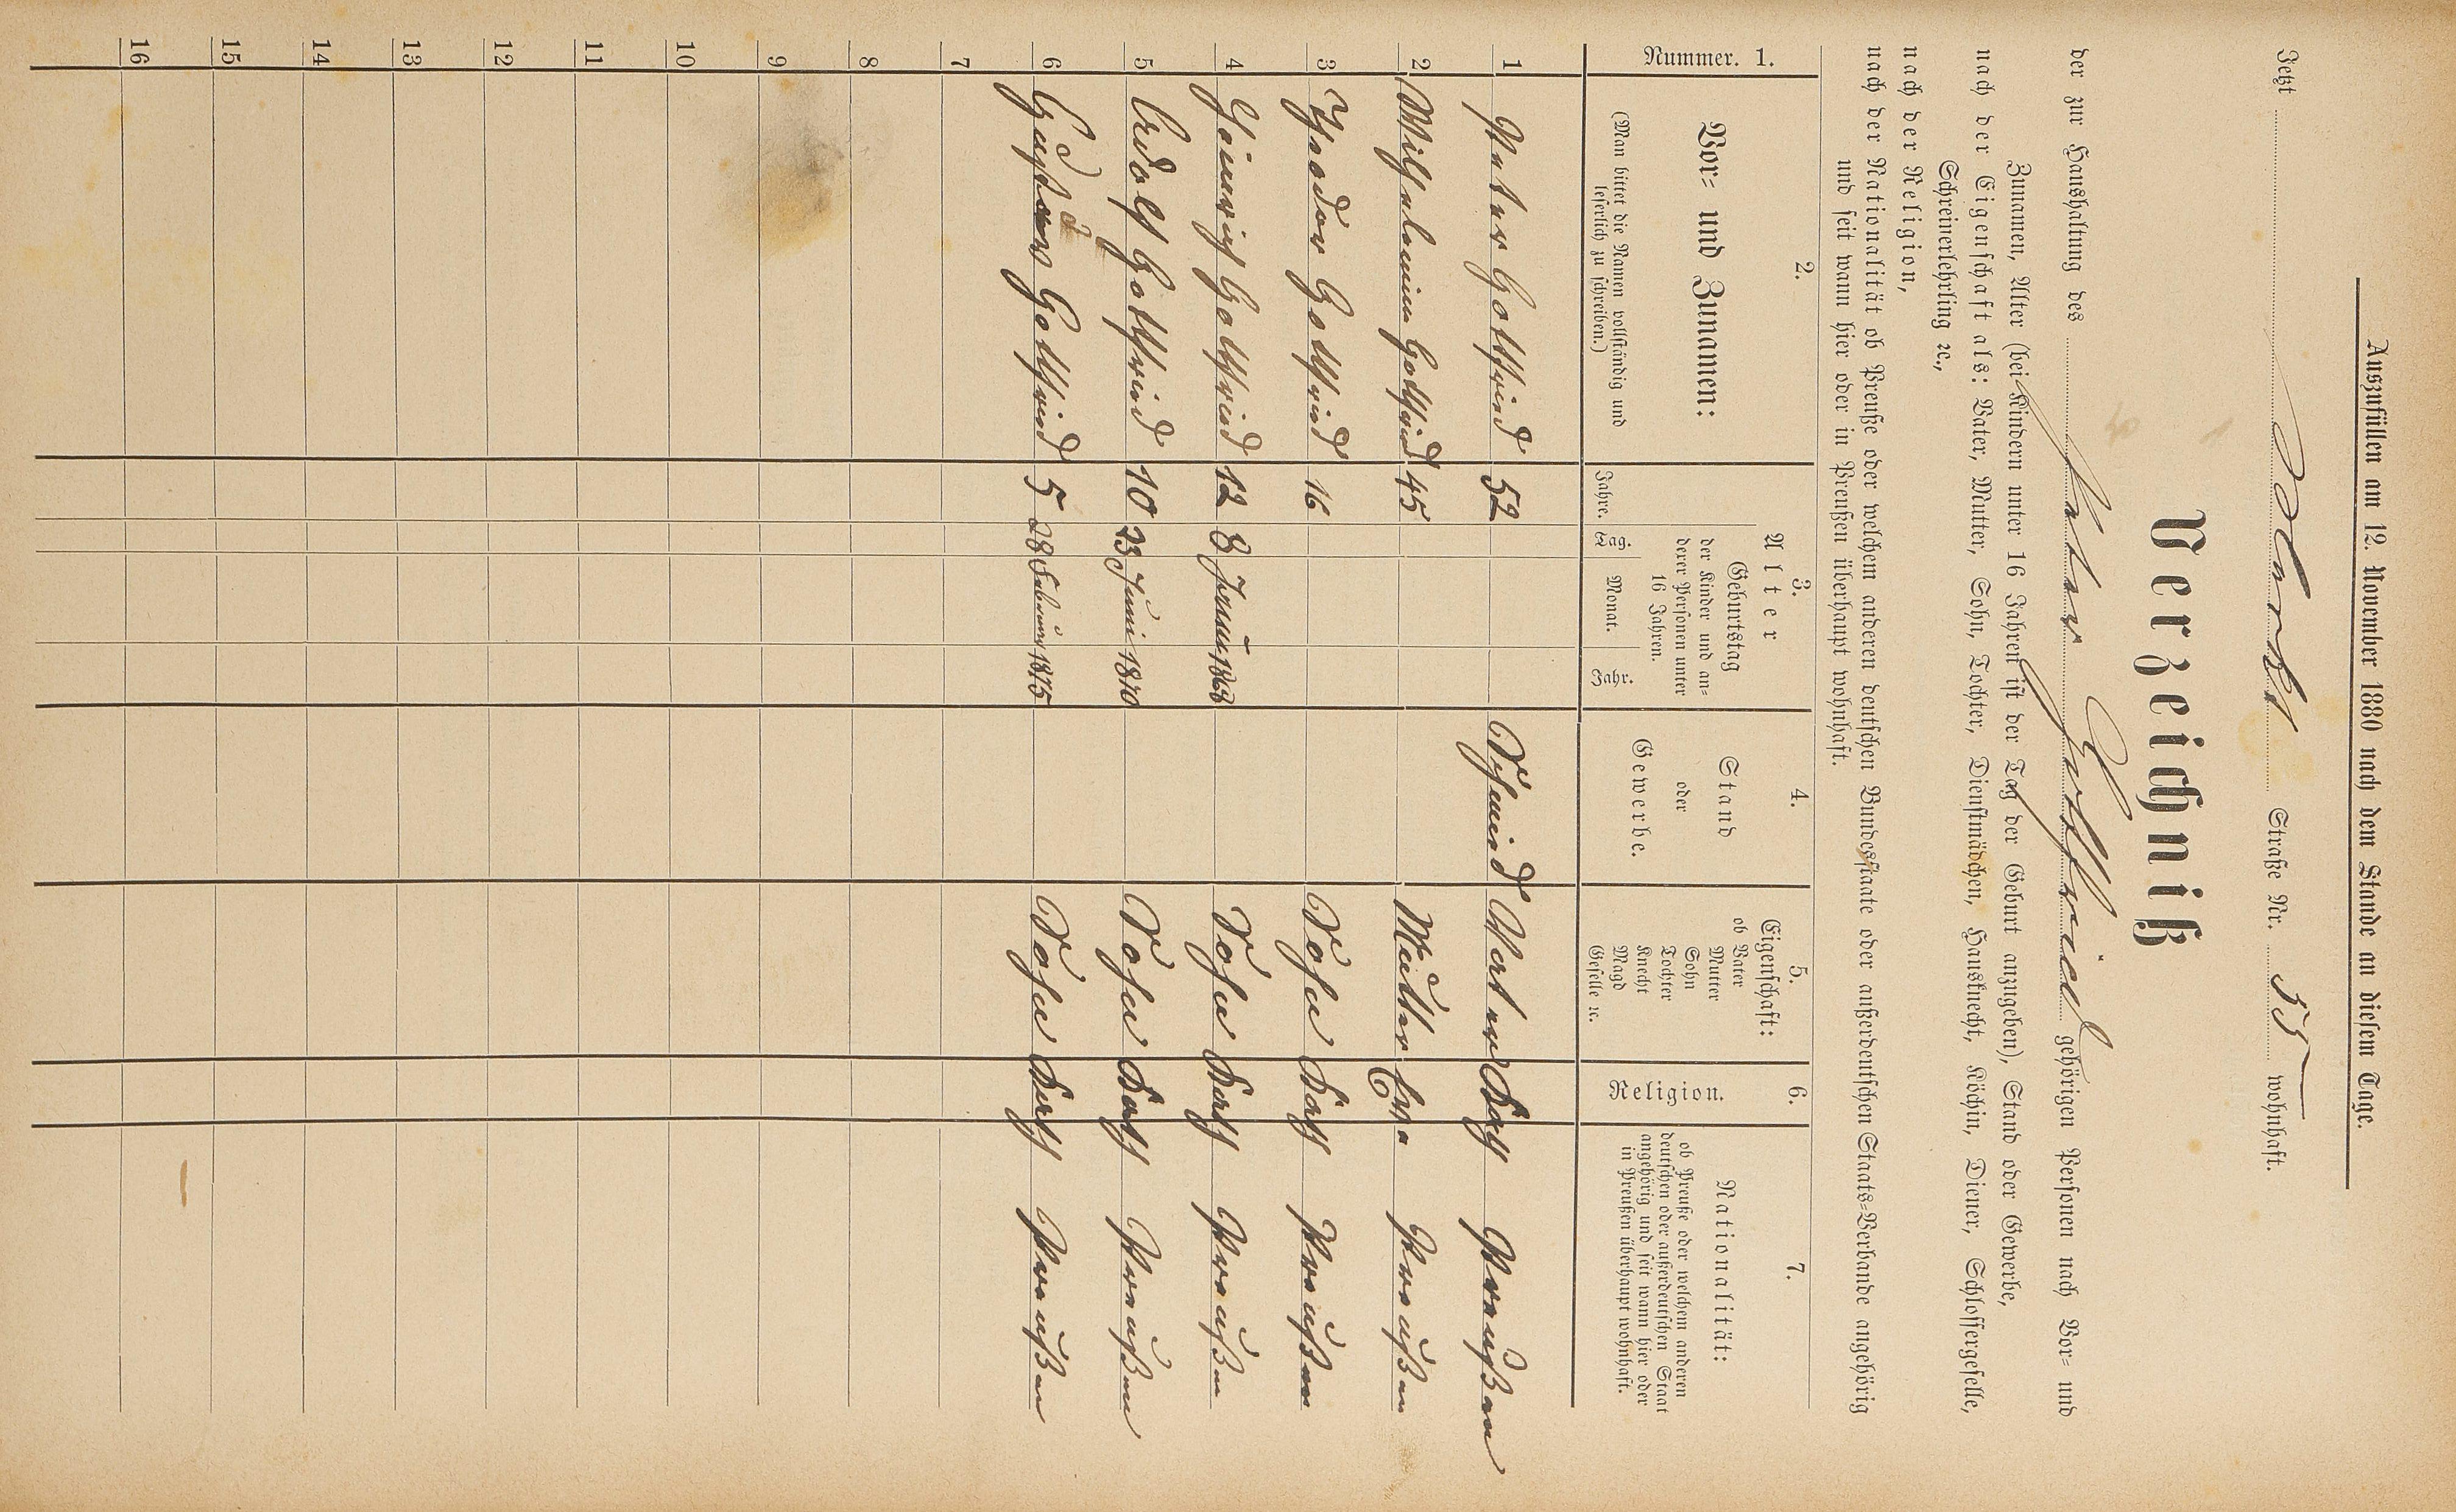 Auszufüllen am 12. November 1880 nach dem Stande an diesem Tage.
Jetzt Markt Straße Nr. 55 wohnhaft.
Verzeichniß
der zur Haushaltung des Peter Gottfried gehörigen Personen nach Vor- und
Zunamen, Alter (bei Kindern unter 16 Jahren ist der Tag der Geburt anzugeben), Stand oder Gewerbe,
nach der Eigenschaft als: Vater, Mutter, Sohn, Tochter, Dienstmädchen, Hausknecht, Köchin, Diener, Schlossergeselle,
Schreinerlehrling ꝛc.,
nach der Religion,
nach der Nationalität ob Preuße oder welchem anderen deutschen Bundesstaate oder außerdeutschen Staats-Verbande angehörig
und seit wann hier oder in Preußen überhaupt wohnhaft.
Nummer. 1.
2.
Vor- und Zunamen:
(Man bittet die Namen vollständig und
leserlich zu schreiben.)
3.
Alter
Jahre.
Geburtstag
der Kinder und an-
derer Personen unter
16 Jahren.
Tag. Monat. Jahr.
4.
Stand
oder
Gewerbe.
5.
Eigenschaft:
ob Vater
Mutter
Sohn
Tochter
Knecht
Magd
Geselle ꝛc.
6.
Religion.
7.
Nationalität:
ob Preuße oder welchem anderen
deutschen oder außerdeutschen Staat
angehörig und seit wann hier oder
in Preußen überhaupt wohnhaft.
1 Peter Gottfried 52 Schmied Vater Kath Preußen
2 Wilhelmine Gottfried 45 Mutter Preußen
3 Theodor Gottfried 16 Sohn Kath Preußen
4 Heinrich Gottfried 12 8 Januar 1868 Sohn Kath Preußen
5 Rudolf Gottfried 10 23 Juni 1870 Sohn Kath Preußen
6 Gustav Gottfried 5 28 Februar 1875 Sohn Kath Preußen
7
8
9
10
11
12
13
14
15
16